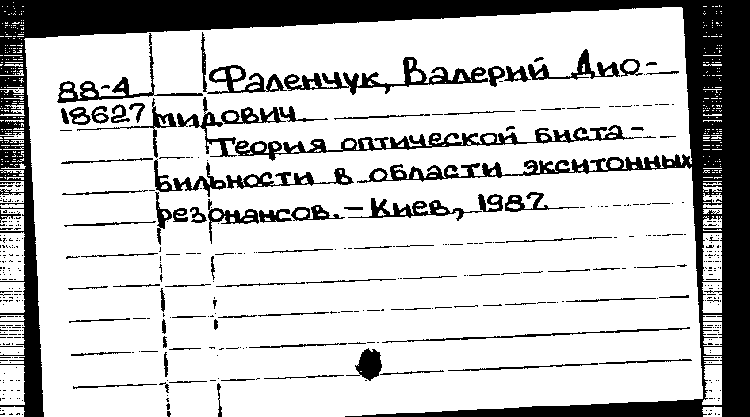 88-4 Фаленчук, Валерий Дио-
18627 мидович
Теория оптической биста-
бильности в области экситонных
резонансов. – Киев, 1987.